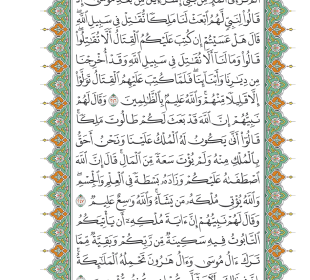 قَالُوا۟ لِنَبِىٍّۢ لَّهُمُ ٱبْعَثْ لَنَا مَلِكًۭا نُّقَـٰتِلْ فِى سَبِيلِ ٱللَّهِ
قَالَ هَلْ عَسَيْتُمْ إِن كُتِبَ عَلَيْكُمُ ٱلْقِتَالُ أَلَّا تُقَـٰتِلُوا۟
قَالُوا۟ وَمَا لَنَآ أَلَّا نُقَـٰتِلَ فِى سَبِيلِ ٱللَّهِ وَقَدْ أُخْرِجْنَا
مِن دِيَـٰرِنَا وَأَبْنَآئِنَا فَلَمَّا كُتِبَ عَلَيْهِمُ ٱلْقِتَالُ تَوَلَّوْا۟
إِلَّا قَلِيلًۭا مِّنْهُمْ وَٱللَّهُ عَلِيمٌۢ بِٱلظَّـٰلِمِينَ وَقَالَ لَهُمْ
نَبِيُّهُمْ إِنَّ ٱللَّهَ قَدْ بَعَثَ لَكُمْ طَالُوتَ مَلِكًۭا
قَالُوٓا۟ أَنَّىٰ يَكُونُ لَهُ ٱلْمُلْكُ عَلَيْنَا وَنَحْنُ أَحَقُّ
بِٱلْمُلْكِ مِنْهُ وَلَمْ يُؤْتَ سَعَةًۭ مِّنَ ٱلْمَالِ قَالَ إِنَّ ٱللَّهَ
ٱصْطَفَىٰهُ عَلَيْكُمْ وَزَادَهُۥ بَسْطَةًۭ فِى ٱلْعِلْمِ وَٱلْجِسْمِ
وَٱللَّهُ يُؤْتِى مُلْكَهُۥ مَن يَشَآءُ وَٱللَّهُ وَٰسِعٌ عَلِيمٌۭ
وَقَالَ لَهُمْ نَبِيُّهُمْ إِنَّ ءَايَةَ مُلْكِهِۦٓ أَن يَأْتِيَكُمُ
ٱلتَّابُوتُ فِيهِ سَكِينَةٌۭ مِّن رَّبِّكُمْ وَبَقِيَّةٌۭ مِّمَّا
تَرَكَ ءَالُ مُوسَىٰ وَءَالُ هَـٰرُونَ تَحْمِلُهُ ٱلْمَلَـٰٓئِكَةُ